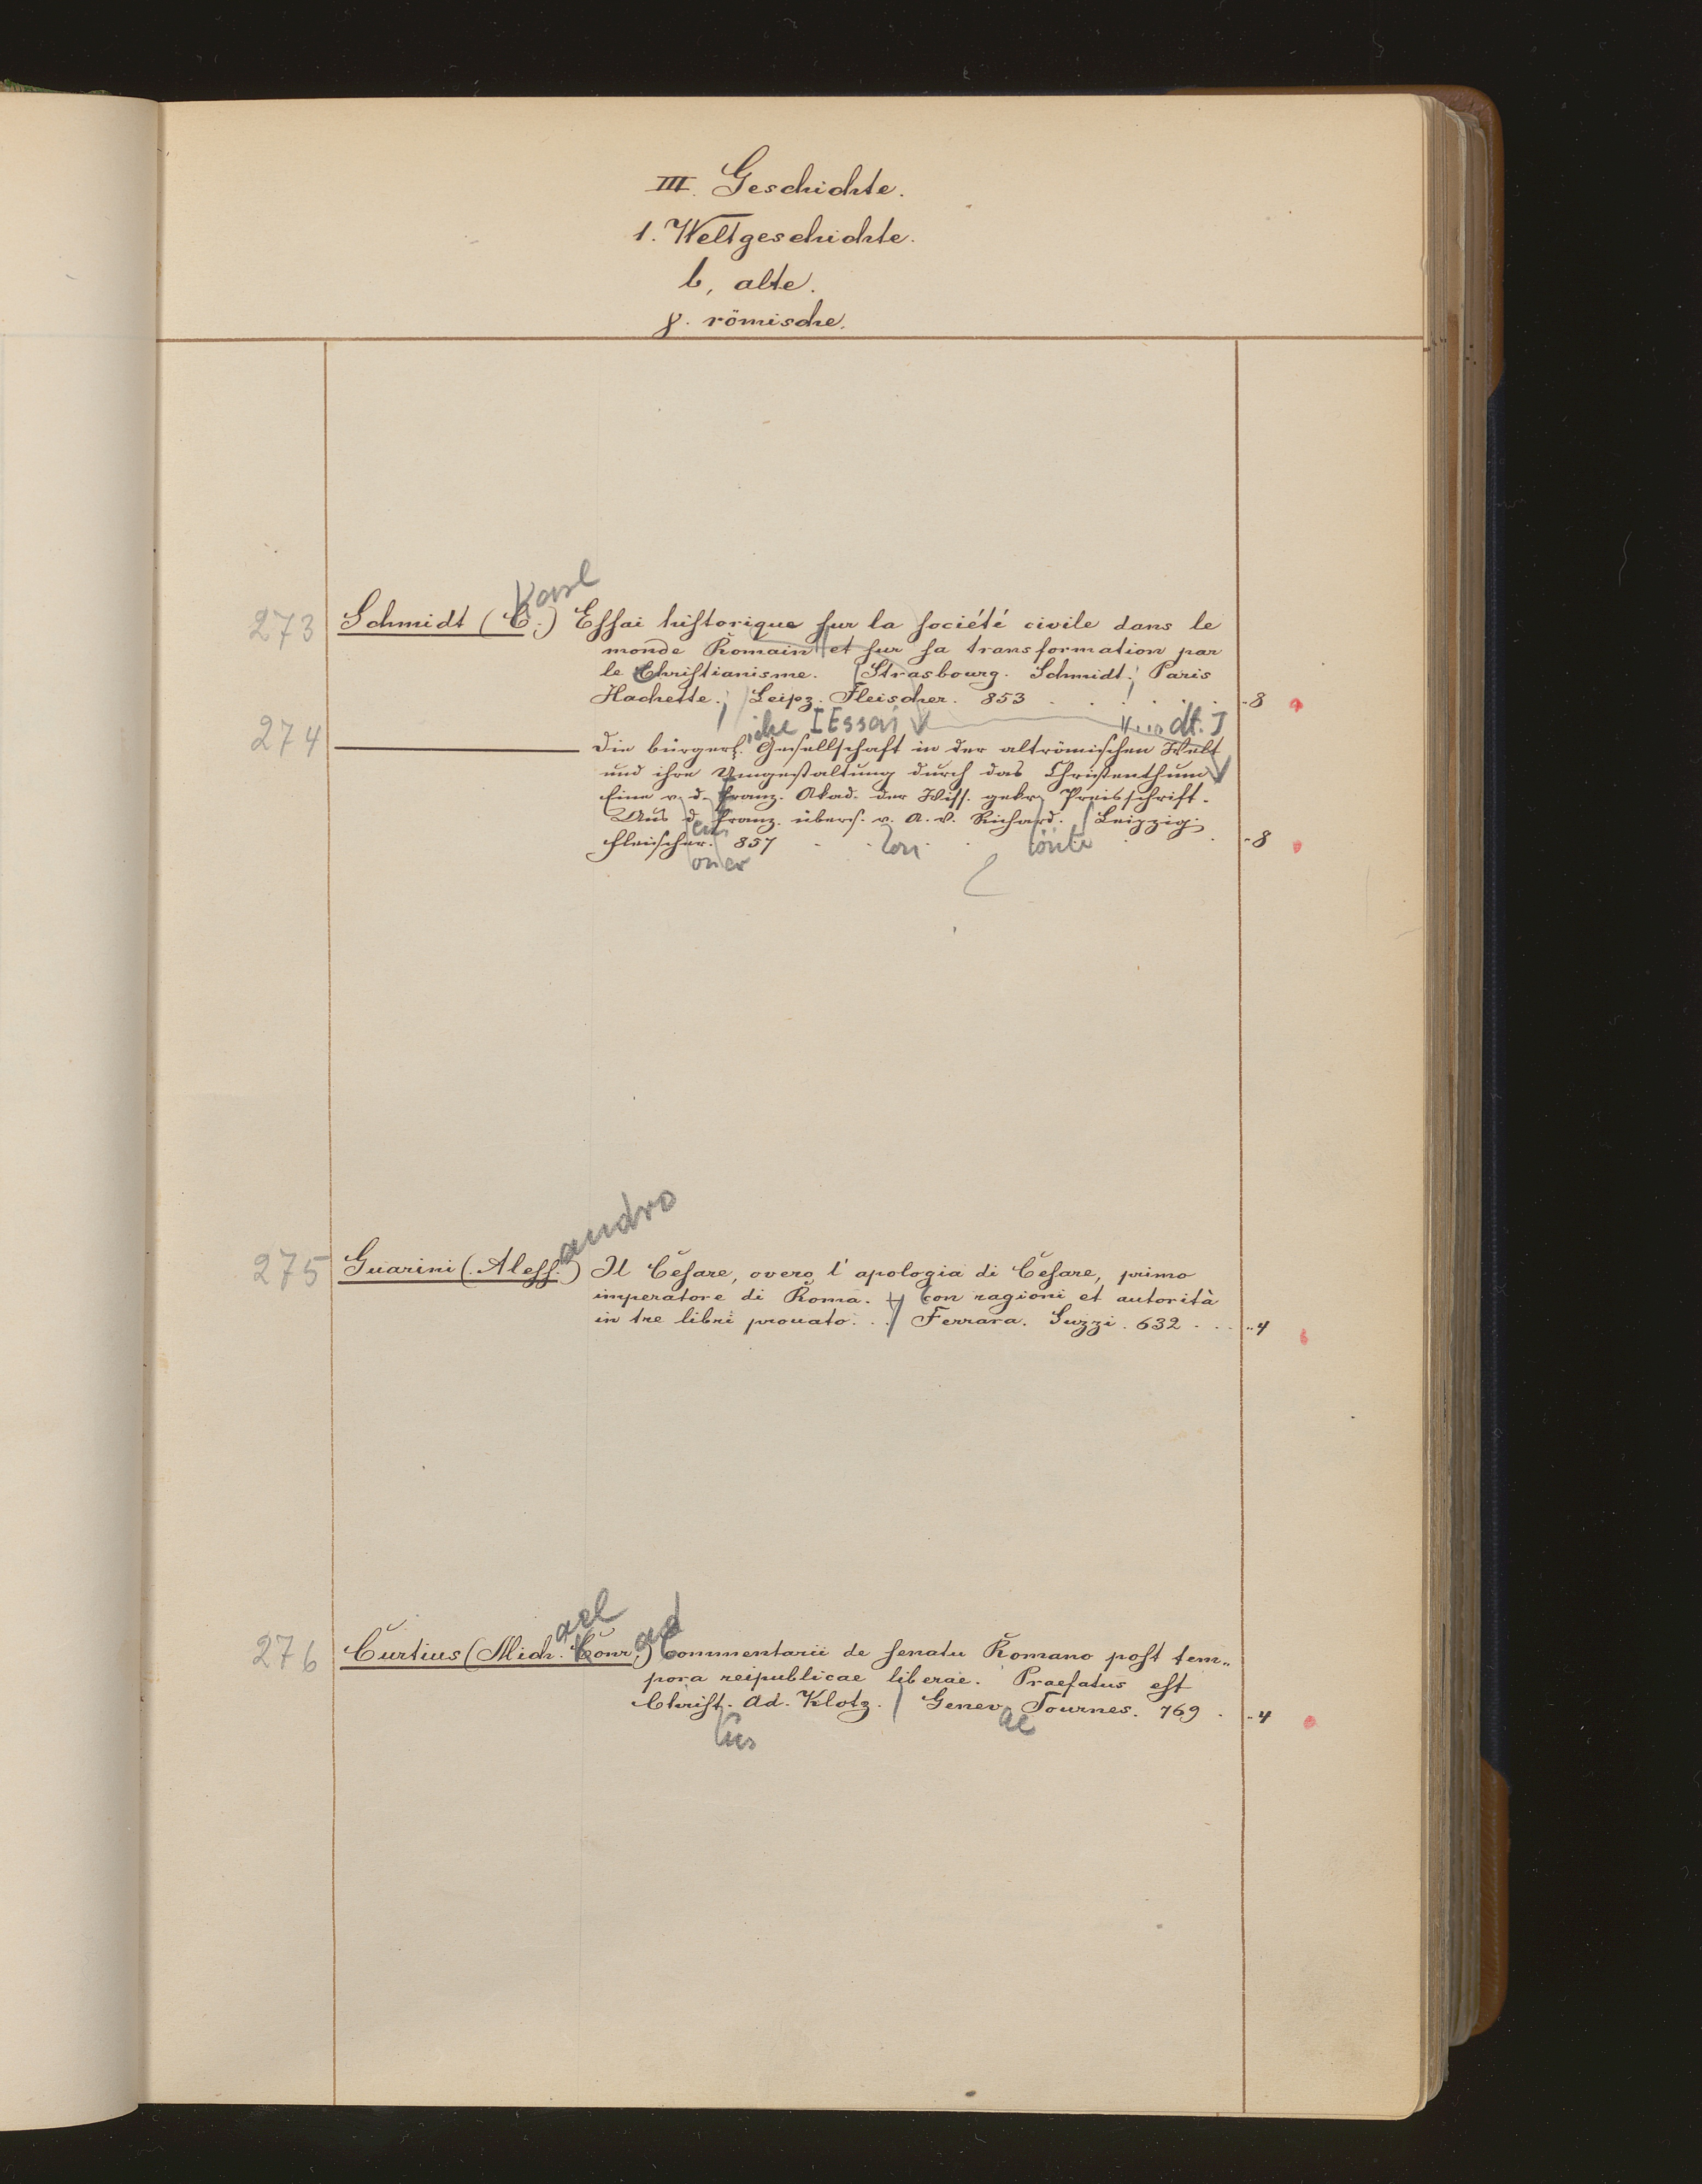 III. Geschichte.
1. Weltgeschichte.
b, alte.
γ. römische.
Karl
273 Schmidt (C.) Essai historique sur la société civile dans le
monde Romain et sur sa transformation par
le Christianisme. Strasbourg. Schmidt; Paris
Hachette; Leipz. Fleischer. 853 . . . . . . -8
iche [Essai dt.]
274 ——— Die bürgerl. Gesellschaft in der altrömischen Welt
und ihre Umgestaltung durch das Christenthum
Eine v. d. franz. Akad. der Wiss. gekr. Preisschrift.
Aus d. Franz. übers. v. A. V. Richard. / Leipzig.
Fleischer. 857 . . . . . -8
em von önte
on er
andro
275 Guarini (Aless.) Il Cesare, overo l'apologia di Cesare, primo
imperatore di Roma. Con ragioni et autorità
in tre libri prouato. . . / Ferrara. Suzzi. 632 . . . -4
ael ad
276 Curtius (Mich. Conr.) Commentarii de senatu Romano post tem-
pora reipublicae liberae. Praefatus est
Christ. Ad. Klotz. / Genev. Tournes. 769 . -4
ius ae